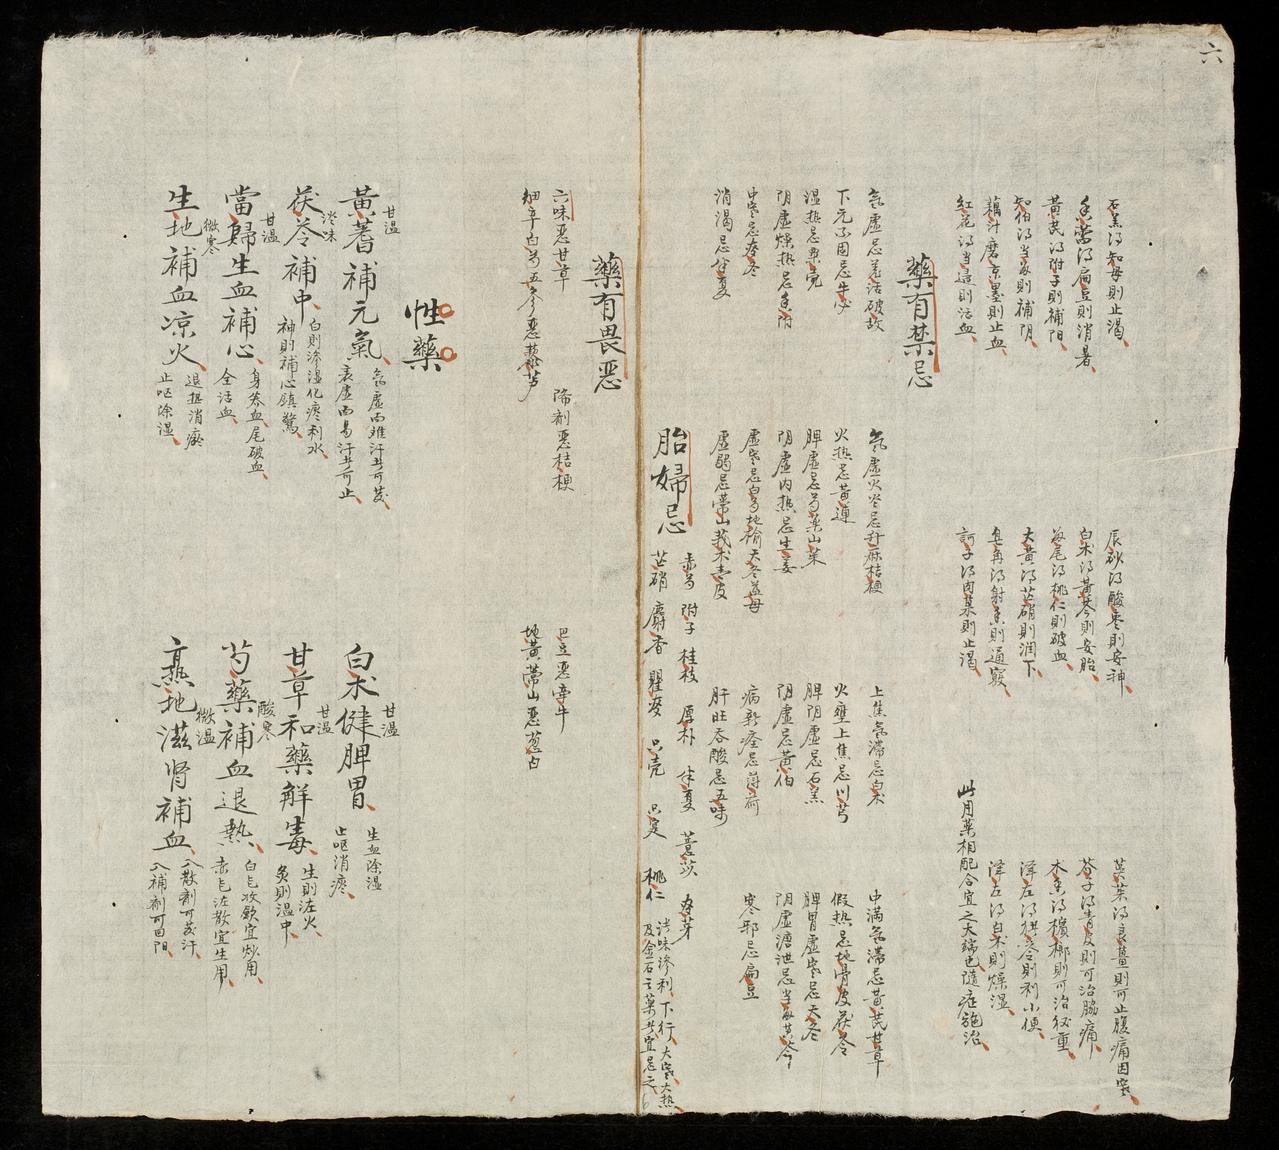 六
石羔得知母則止渴
辰砂得酸枣則安神
吳茱得良薑則可止腹痛因寒
香薷得扁豆則消暑
白朮得黃芩則安胎
芥子得青皮則可治脇痛
黃芪得附子則補阳
歸尾得桃仁則破血
木香得檳榔則可治後重
知伯得当歸則補阴
大黃得芒硝則润下
澤左得猪苓則利小便
藕汁磨京墨則止血
皂角得射香則通竅
澤左得白朮則燥湿
紅花得当歸則活血
訶子得肉菓則止瀉
此用藥相配合宜之大端也隨症施治
藥有禁忌
氣虛忌羌活破故
氣虛火炎忌升麻桔梗
上焦氣滯忌白朮
中滿氣滯忌黃芪甘草
下元不固忌牛必
火热忌黄連
火壅上焦忌川芎
假热忌地骨皮茯苓
湿热忌粟壳
脾虛忌芍藥山茱
脾阴虛忌石羔
脾胃虛寒忌天冬
阴虛燥热忌香附
阴虛內热忌生姜
阴虛忌黄伯
阴虛溏泄忌当歸黄芩
中寒忌麥冬
虛寒忌白芍地榆天冬益母
病新痊忌薄荷
寒邪忌扁豆
消渴忌半夏
虛弱忌常山莪朮青皮
肝旺吞酸忌五味
胎婦忌
赤芍 附子 桂枝 厚朴 半夏 薏苡 麥芽
芒硝 麝香 瞿麥 只壳 只寔 桃仁
淡味滲利下行大寒大热
及金石之藥者宜忌之
藥有畏惡
六味惡甘草
降剂惡桔梗
巴豆惡牵牛
細辛白芍五参惡藜芦
地黃常山惡葱白
性藥
黃蓍補元氣
甘温
氣虛而难汗者可發
表虛而易汗者可止
白朮健脾胃
甘温
生血除湿
止呕消疼
茯苓補中
淡味
白則滲湿化痰利水
神則補心鎮驚
甘草和藥解毒
甘温
生則泣火
炙則温中
當歸生血補心
甘温
身养血尾破血
全活血
芍藥補血退热
酸寒
白色收歛宜炒用
赤色泣散宜生用
生地補血凉火
微寒
退热消瘀
止呕除湿
熟地滋肾補血
微温
入散剂可發汗
入補剂可回阳